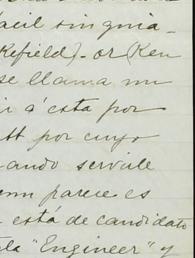 fácil sin guia-
kefield)- or (Ken
se llama mi
ir á ésta por
tt por cuyo
ando servile
enn parece es
está de candidato
la "Engineer" y